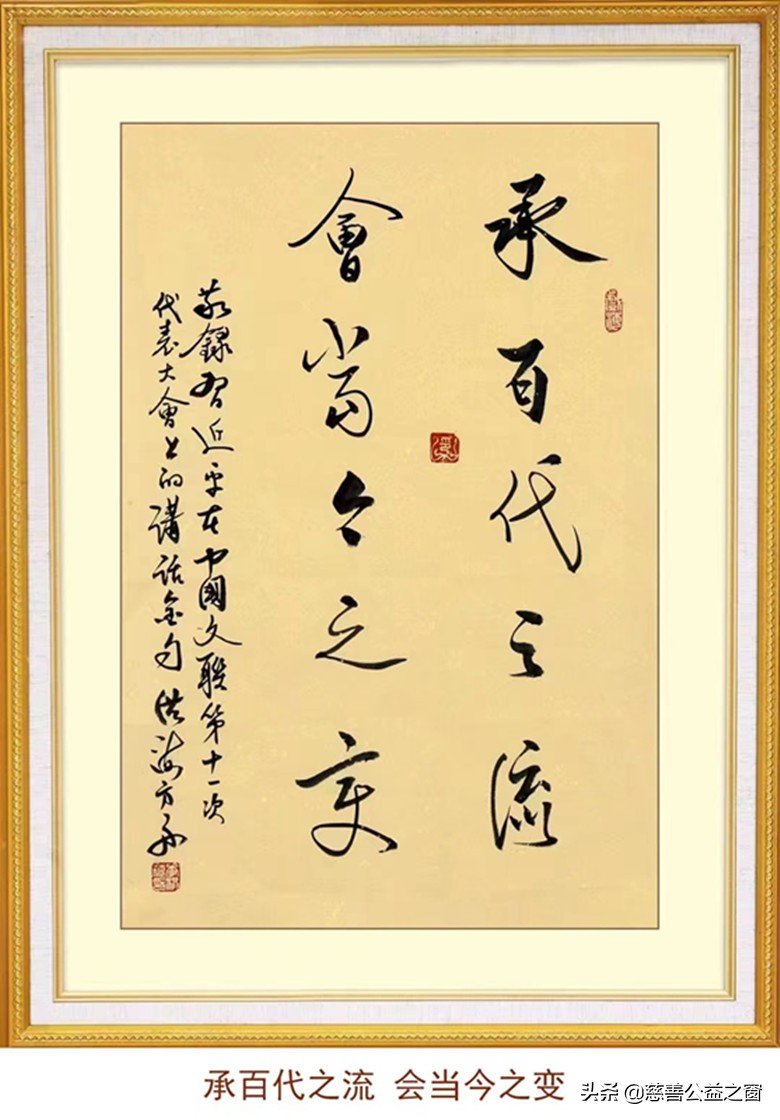 承百代之流
會當今之变
敬録習近平在中國文聯第十一次
代表大會上的講話金句
承百代之流 会当今之变
头条 @慈善公益之窗